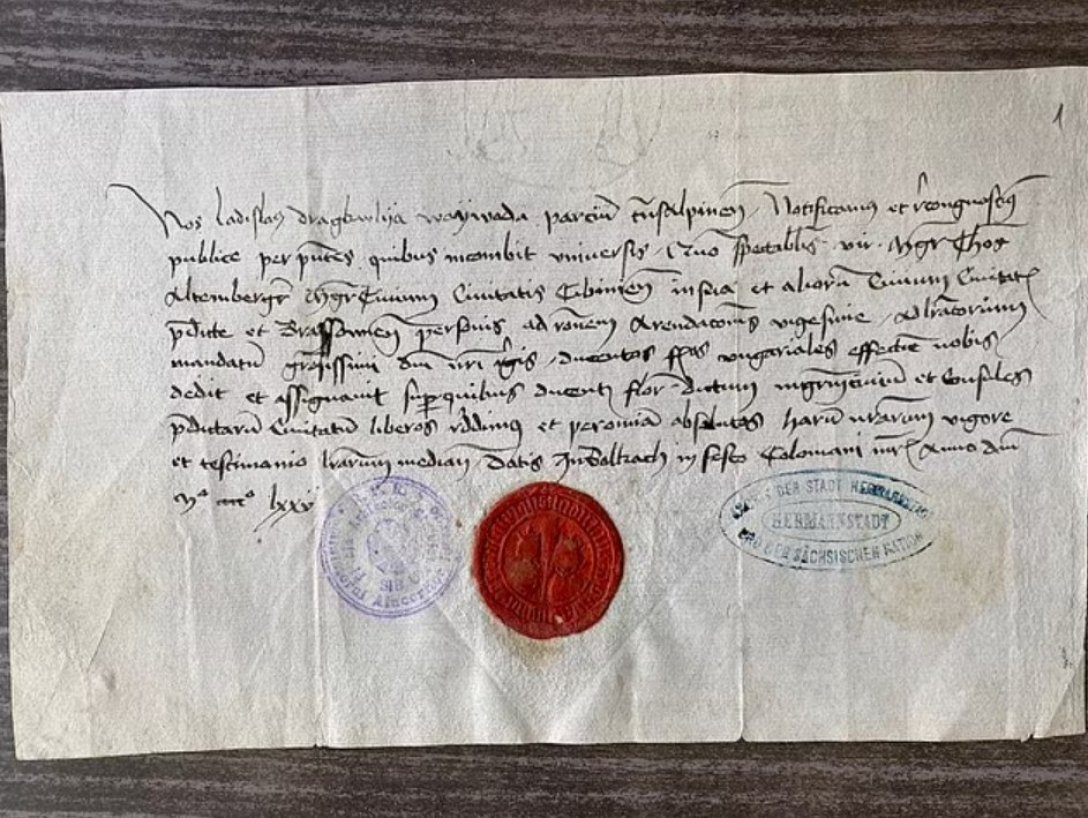 1
Nos ladislaus dragkwlija waywada parcium transalpinen Notificamus et recongnoscimus
publice per pntes quibus incombit universis Quod spectabilis vir Mgr Thos
Altemberger Mgr Civium Civitatis Cibinien in sua et aliorum Civium Civitatis
pdicte et Brassowien personis ad ronem Arendacionis vigesime ad
mandatum dni nri Regis ducentos flos ungariales effective nobis
dedit et assignavit super quibus ducentis flor dictum mgrmcivium et Consules
pdictarum Civitatum liberos reddimus et absolutos harum nrarum vigore
et testimonio lrarum mediante Datis In Baltzach in festo Colomani mris Anno dni
Mo cccco lxxv
SIBIU
ARCHIV DER STADT HERMANNSTADT
HERMANNSTADT
UND DER SÄCHSISCHEN NATION